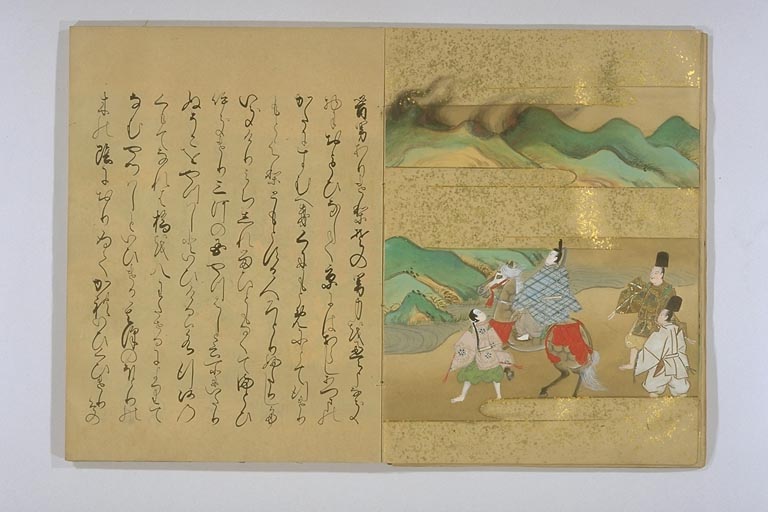 昔男ありけりその男身をえうなき
物に思ひなして京にはあらしあつまの
かたにすむへき国もとめにとて行けり
もとより友とする人ひとりふたりして
いきけり道しれる人もなくてまとひ
いきけり三河の国やつはしといふ所にいたり
ぬそこをやつはしといひけるは水行河の
くもてなれは橋を八わたせるによりて
なむやつはしといひける其沢のほとりの
木の陰におりゐてかれいひくひけりその